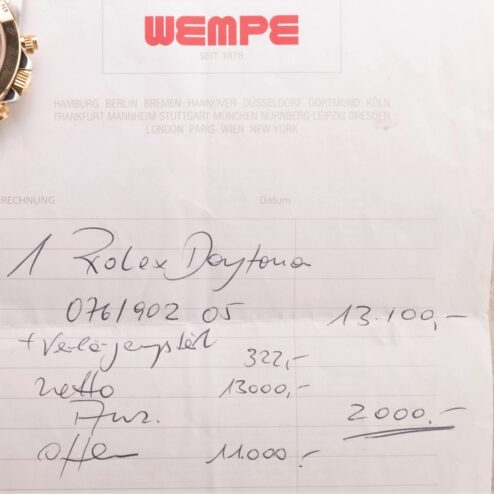 WEMPE
SEIT 1878
HAMBURG BERLIN BREMEN HANNOVER DÜSSELDORF DORTMUND KÖLN
FRANKFURT MANNHEIM STUTTGART MÜNCHEN NÜRNBERG LEIPZIG DRESDEN
LONDON PARIS WIEN NEW YORK
RECHNUNG Datum
1 Rolex Daytona
076/902 05 13.100,-
+ Verlängerungsteil 322,-
netto 13000,-
Anz. 2000,-
offen 11.000,-